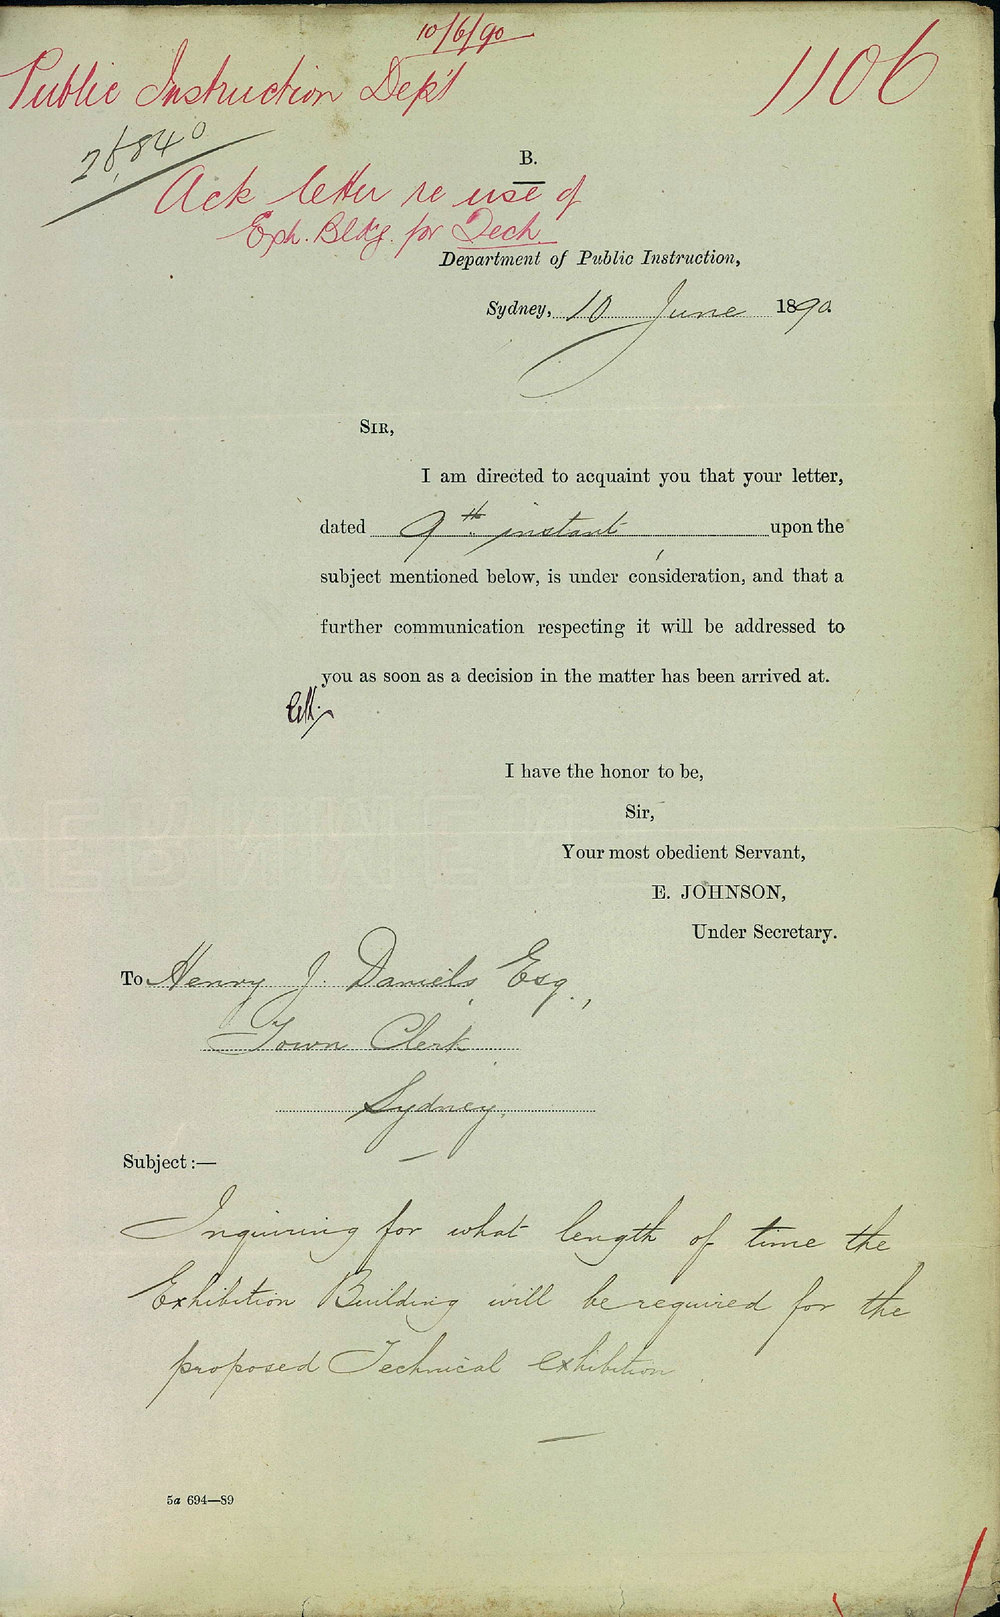 10/6/90
Public Instruction Dep't
1106
B.
Ack letter re use of
Exh. Bldg. for Tech.
Department of Public Instruction,
Sydney, 10 June 1890.
SIR,
I am directed to acquaint you that your letter,
dated 9th instant upon the
subject mentioned below, is under consideration, and that a
further communication respecting it will be addressed to
you as soon as a decision in the matter has been arrived at.
I have the honor to be,
Sir,
Your most obedient Servant,
E. JOHNSON,
Under Secretary.
To Henry J. Daniels, Esq.,
Town Clerk
Sydney.
Subject:—
Inquiring for what length of time the
Exhibition Building will be required for the
proposed Technical exhibition.
5a 694—89